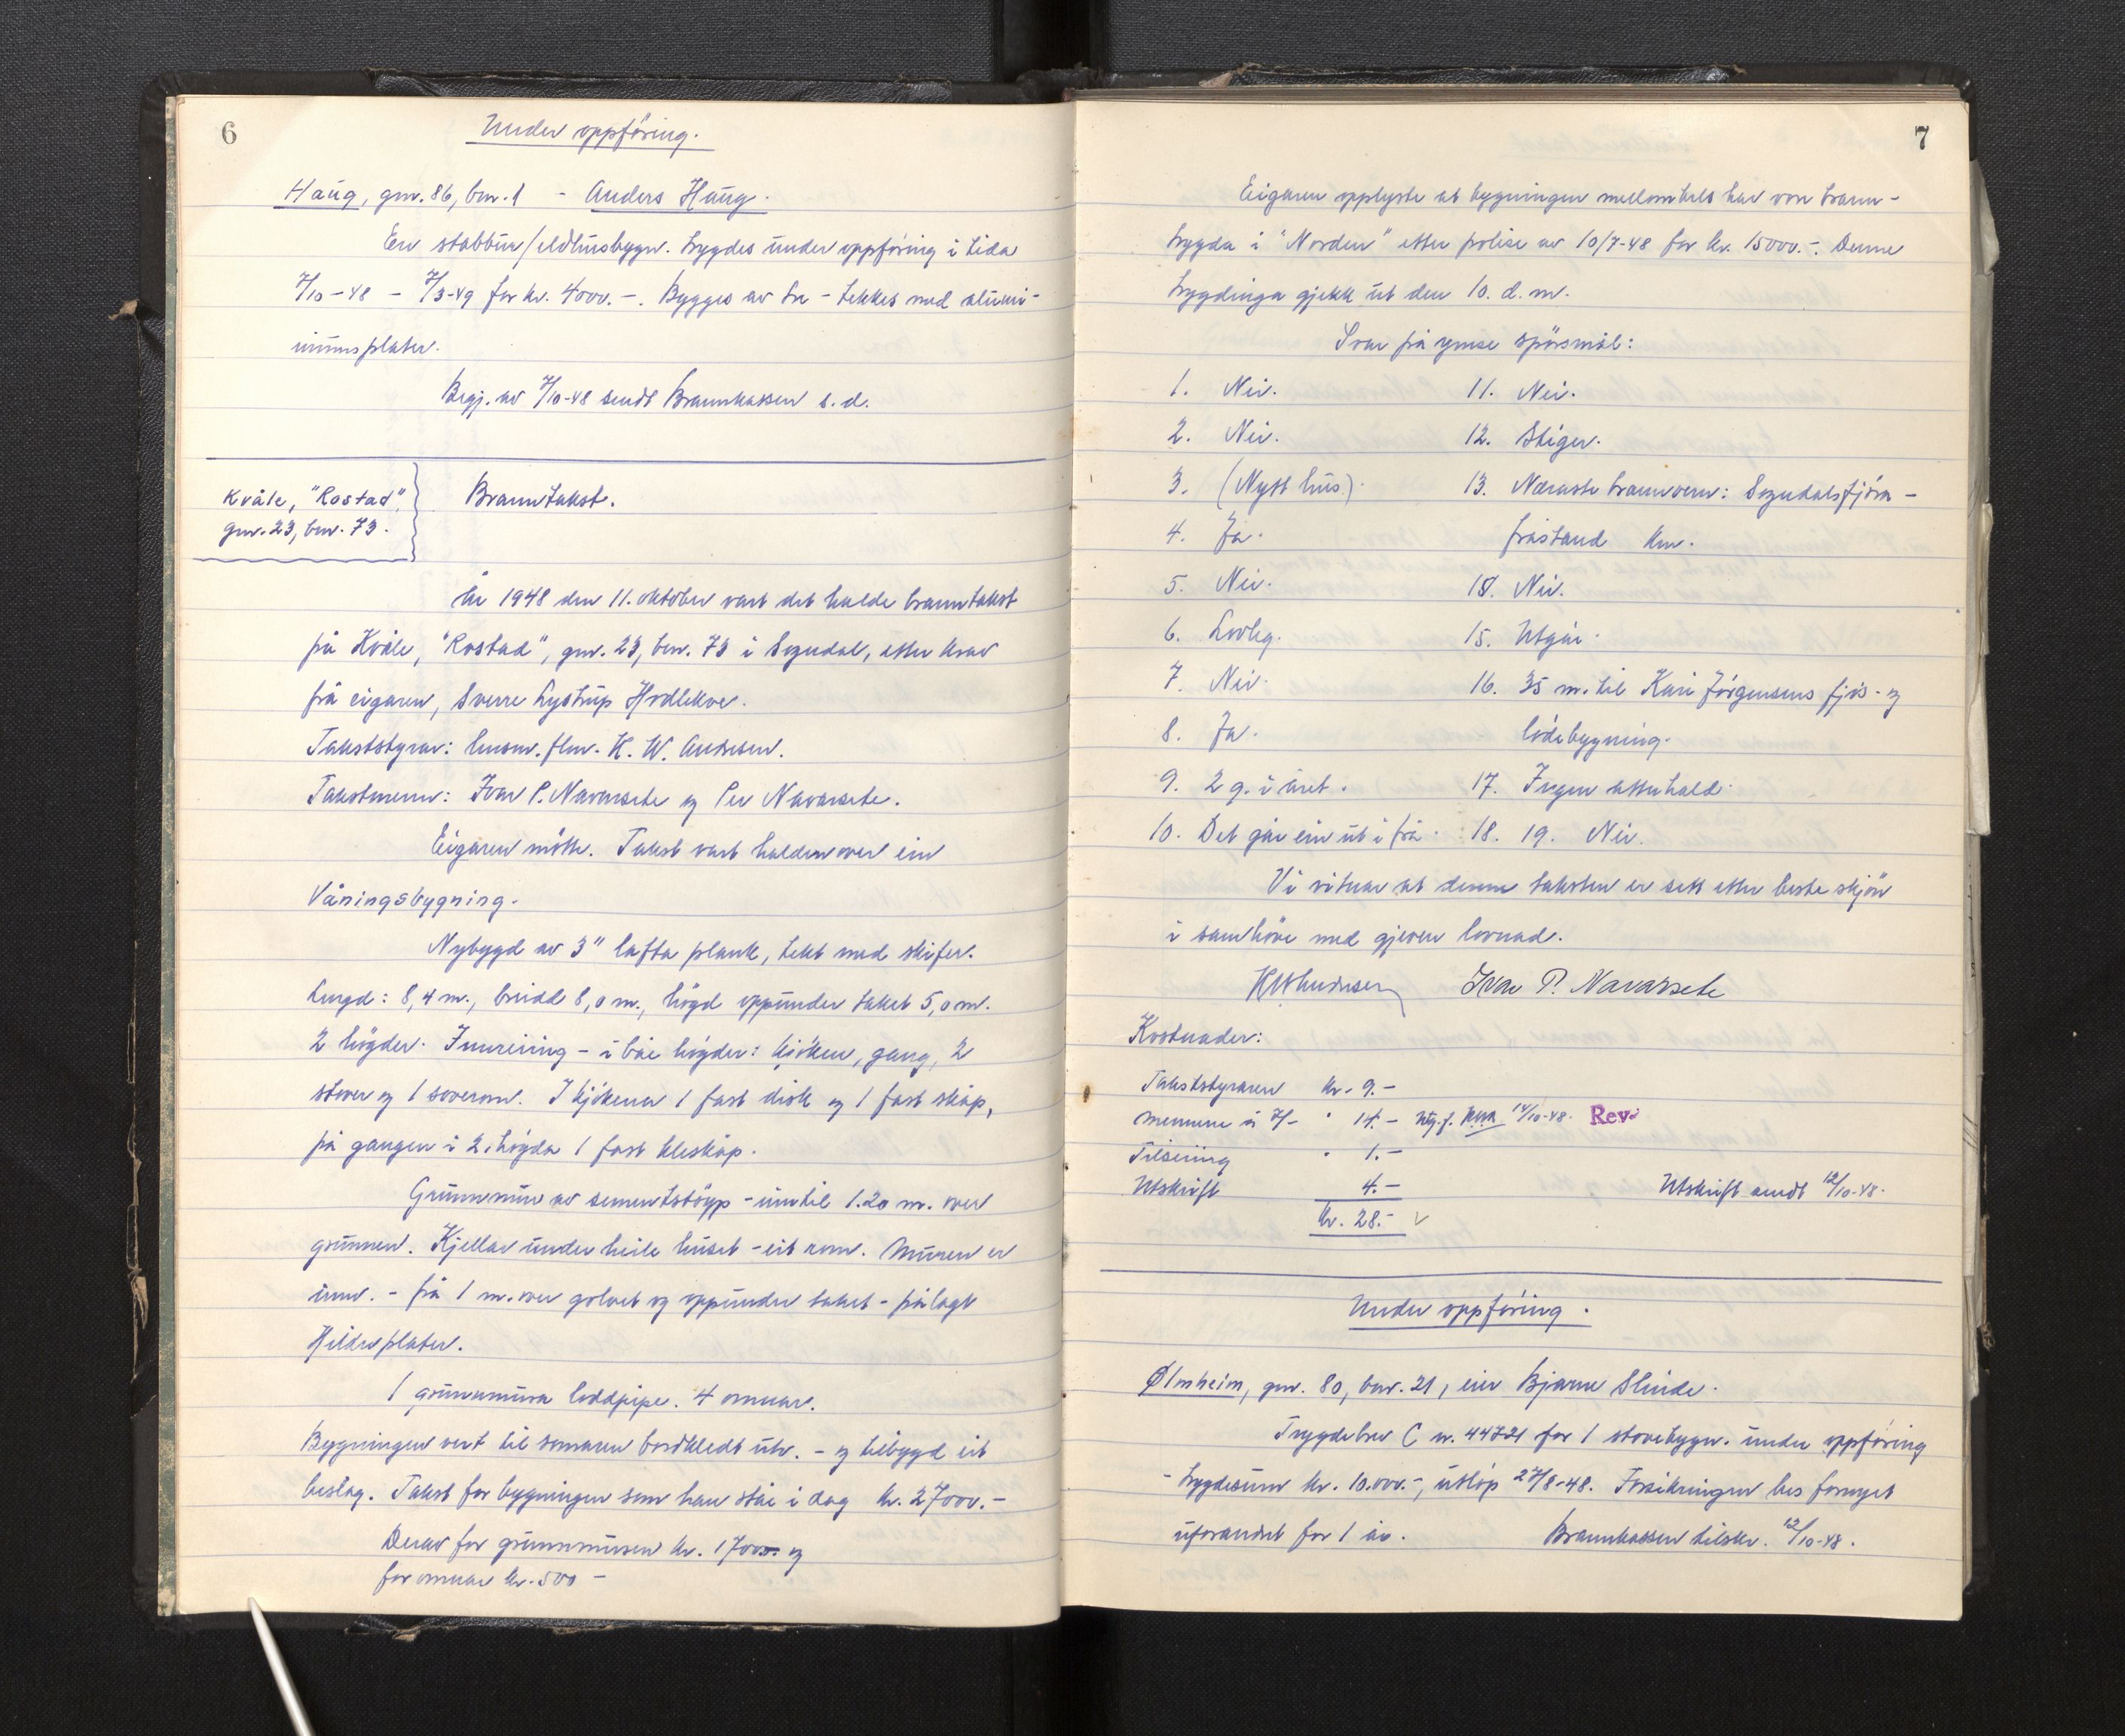 6
Under oppföring.
Haug, gnr. 86, bnr. 1 - Anders Haug.
En stabbur/eldhusbygn. trygdes under oppföring i tida
7/10-48 - 7/3-49 for kr. 4000.-. Bygges av tre - tekkes med alumi-
niumsplater.
Begj. av 7/10-48 sendt Brannkassen s.d.
Kvåle, "Rostad",
gnr. 23, bnr. 73.
Branntakst.
År 1948 den 11. oktober vart det halde branntakst
på Kvåle, "Rostad", gnr. 23, bnr. 73 i Sogndal, etter krav
frå eigaren, Sverre Lystrup Hodlekve.
Takststyrar: lensm.flm. H. W. Andresen.
Takstmenn: Ivar P. Navarsete og Per Navarsete.
Eigaren mötte. Takst vart halden over ein
Våningsbygning.
Nybygd av 3" lafta plank, tekt med skifer.
Lengd: 8,4 m., breidd 8,0 m., högd oppunder taket 5,0 m.
2 högder. Innreiing - i båe högder: kjöken, gang, 2
stover og 1 soverom. I kjökena 1 fast disk og 1 fast skåp,
på gangen i 2. högda 1 fast kleskåp.
Grunnmur av sementstöyp - inntil 1.20 m. over
grunnen. Kjellar under heile huset - eit rom. Muren er
innv. - frå 1 m. over golvet og oppunder taket - pålagt
Hildreplater.
1 grunnmura loddpipe. 4 omnar.
Bygningen vert til somaren bordkledt utv. - og tilbygd eit
beslag. Takst for bygningen som han står i dag kr. 27000.-
Derav for grunnmuren kr. 1700.- og
for omnar kr. 500 -
7
Eigaren opplyste at bygningen mellombels har vore brann-
trygda i "Norden" etter polise av 10/7-48 for kr. 15000.-. Denne
trygdinga gjekk ut den 10. d.m.
Svar på ymse spörsmål:
1. Nei. 11. Nei.
2. Nei. 12. Stiger.
3. (Nytt hus). 13. Næraste brannvern: Sogndalsfjöra -
4. Ja. fråstand km.
5. Nei. 14. Nei.
6. Lovleg. 15. Utgår.
7. Nei. 16. 35 m. til Kari Jörgensens fjös- og
8. Ja. lödebygning.
9. 2 g. i året. 17. Ingen atterhald.
10. Det går ein ut i frå. 18. 19. Nei.
Vi vitnar at denne taksten er sett etter beste skjön
i samhöve med gjeven lovnad.
HWAndresen Ivar P. Navarsete
Kostnader:
Takststyraren kr. 9.-
Mennene à 7/- " 14.- Utg. f. 14/10-48. Rev.
Tilseiing " 1.-
Utskrift 4.- Utskrift sendt 12/10-48.
kr. 28.- √
Under oppföring.
Ølmheim, gnr. 80, bnr. 21, eier Bjarne Slinde.
Trygdebrev C nr. 44721 for 1 stovebygn. under oppföring
- trygdesum kr. 10.000.-, utlöp 27/8-48. Forsikringen bes fornyet
uforandret for 1 år. Brannkassen tilskr. 12/10-48.